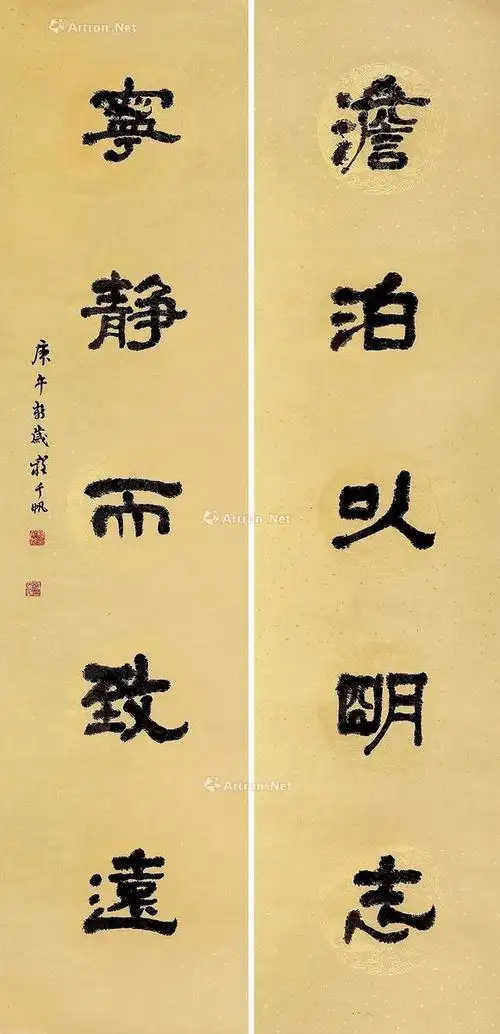 澹泊以朙志
寧静而致遠
庚午新歲程千帆
Artron.Net
Artron.Net
Artron.Net
Artron.Net